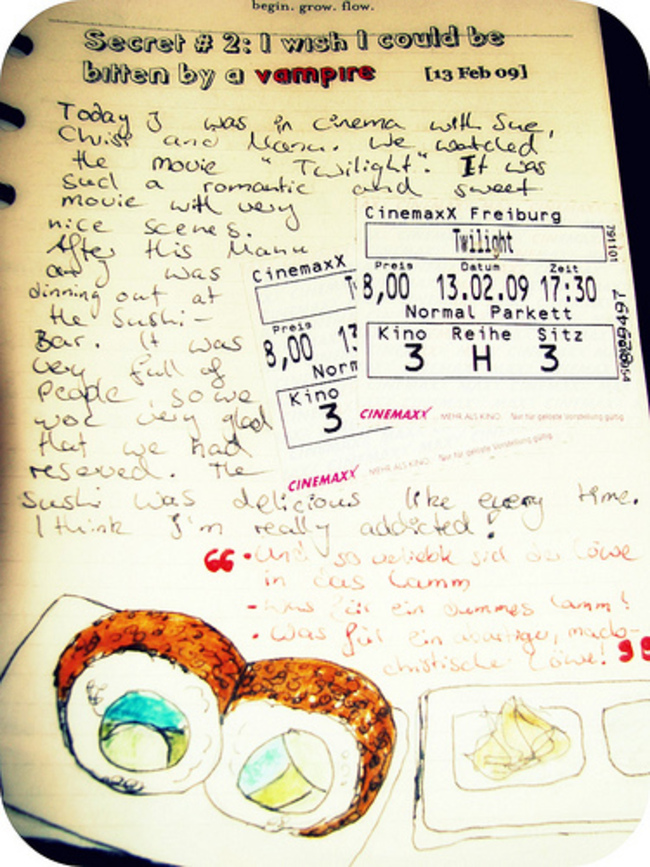 begin. grow. flow.
Secret # 2: I wish I could be
bitten by a vampire [13 Feb 09]
Today I was in cinema with Sue,
Chrissi and Manu. We watched
the movie "Twilight". It was
such a romantic and sweet
movie with very
nice scenes.
After this Manu
and I was
dinning out at
the Sushi-
Bar. It was
very full of
people, so we
wor very glad
that we had
reserved. The
sushi was delicious like every time.
I think I'm really addicted!
CinemaxX
Preis
8,00 13
Norm
Kino
3
CINEMAXX MEHR ALS KINO Nur für gelöste Vorstellung gültig
CinemaxX Freiburg
Twilight
Preis Datum Zeit
8,00 13.02.09 17:30
Normal Parkett
Kino Reihe Sitz
3 H 3
791101
CINEMAXX MEHR ALS KINO Nur für gelöste Vorstellung gültig
“ • Und so verliebte sich der Löwe
in das Lamm
- Was für ein dummes Lamm!
• Was für ein abartiger, maso-
christischer Löwe! ”